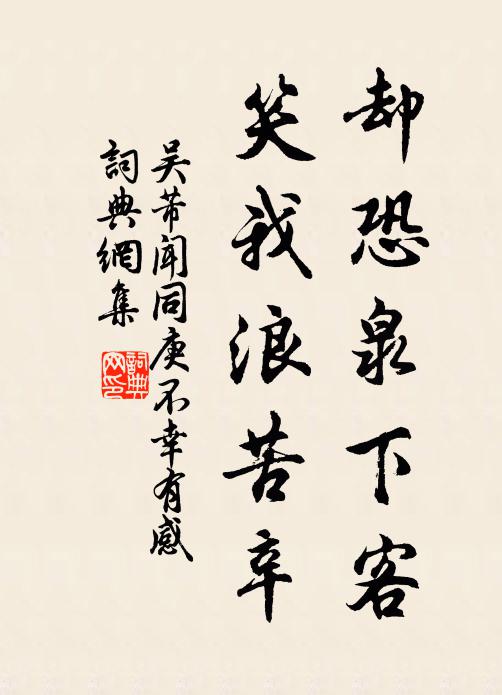 却恐泉下客
笑我浪苦辛
吴芾闻同庚不幸有感
詞典網集
詞典網印